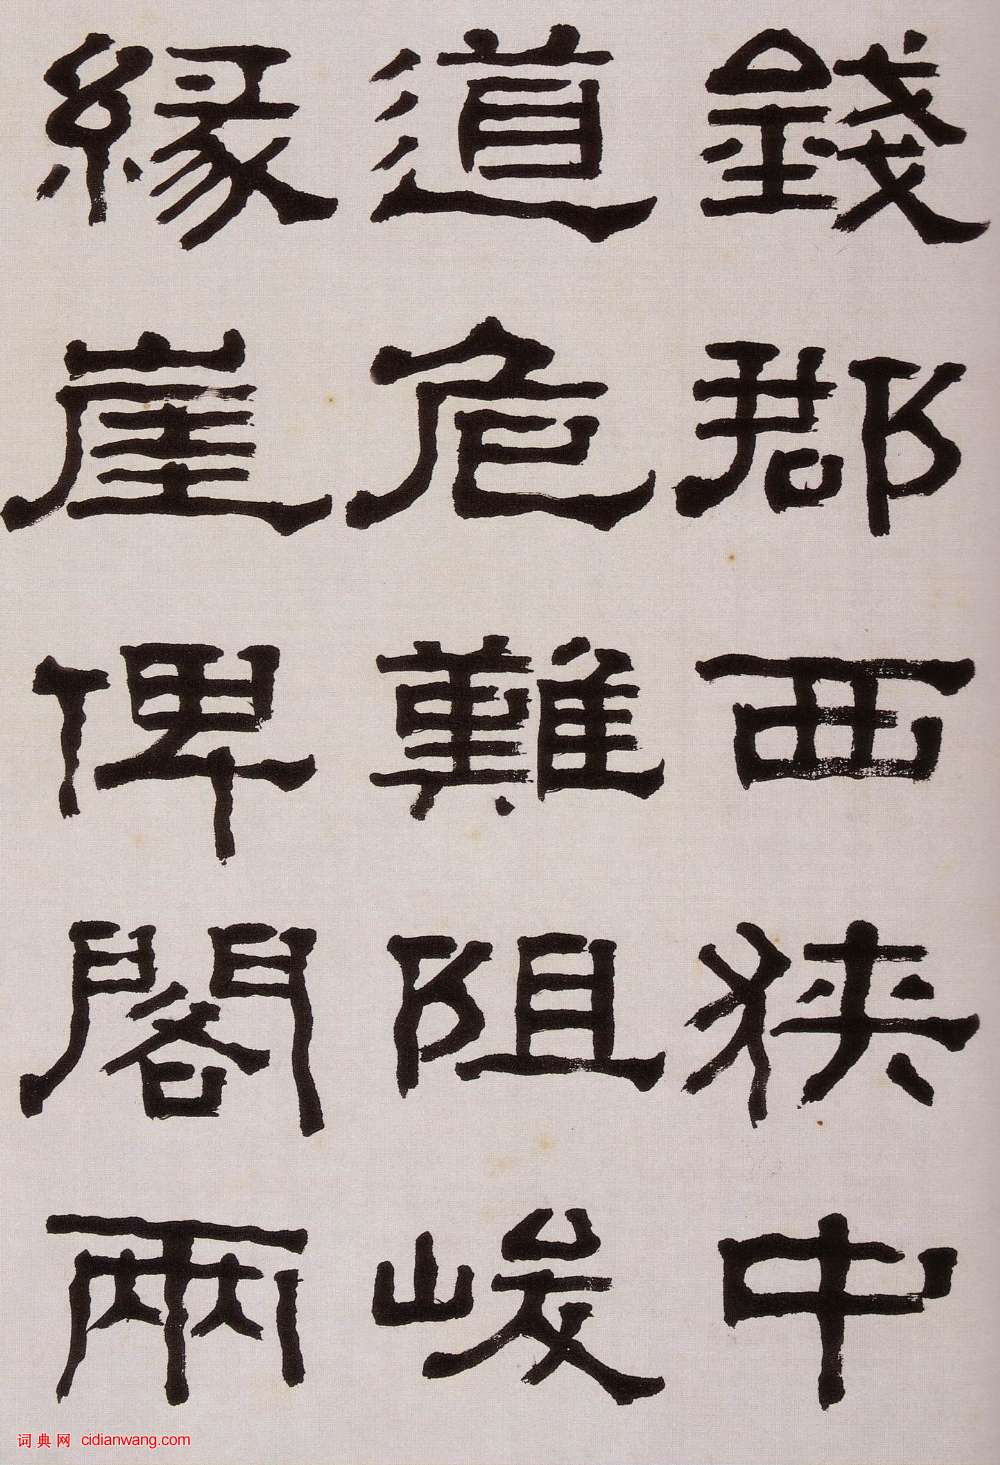 錢郡西狹中
道危難阻峻
緣崖俾閣兩
词典网 cidianwang.com